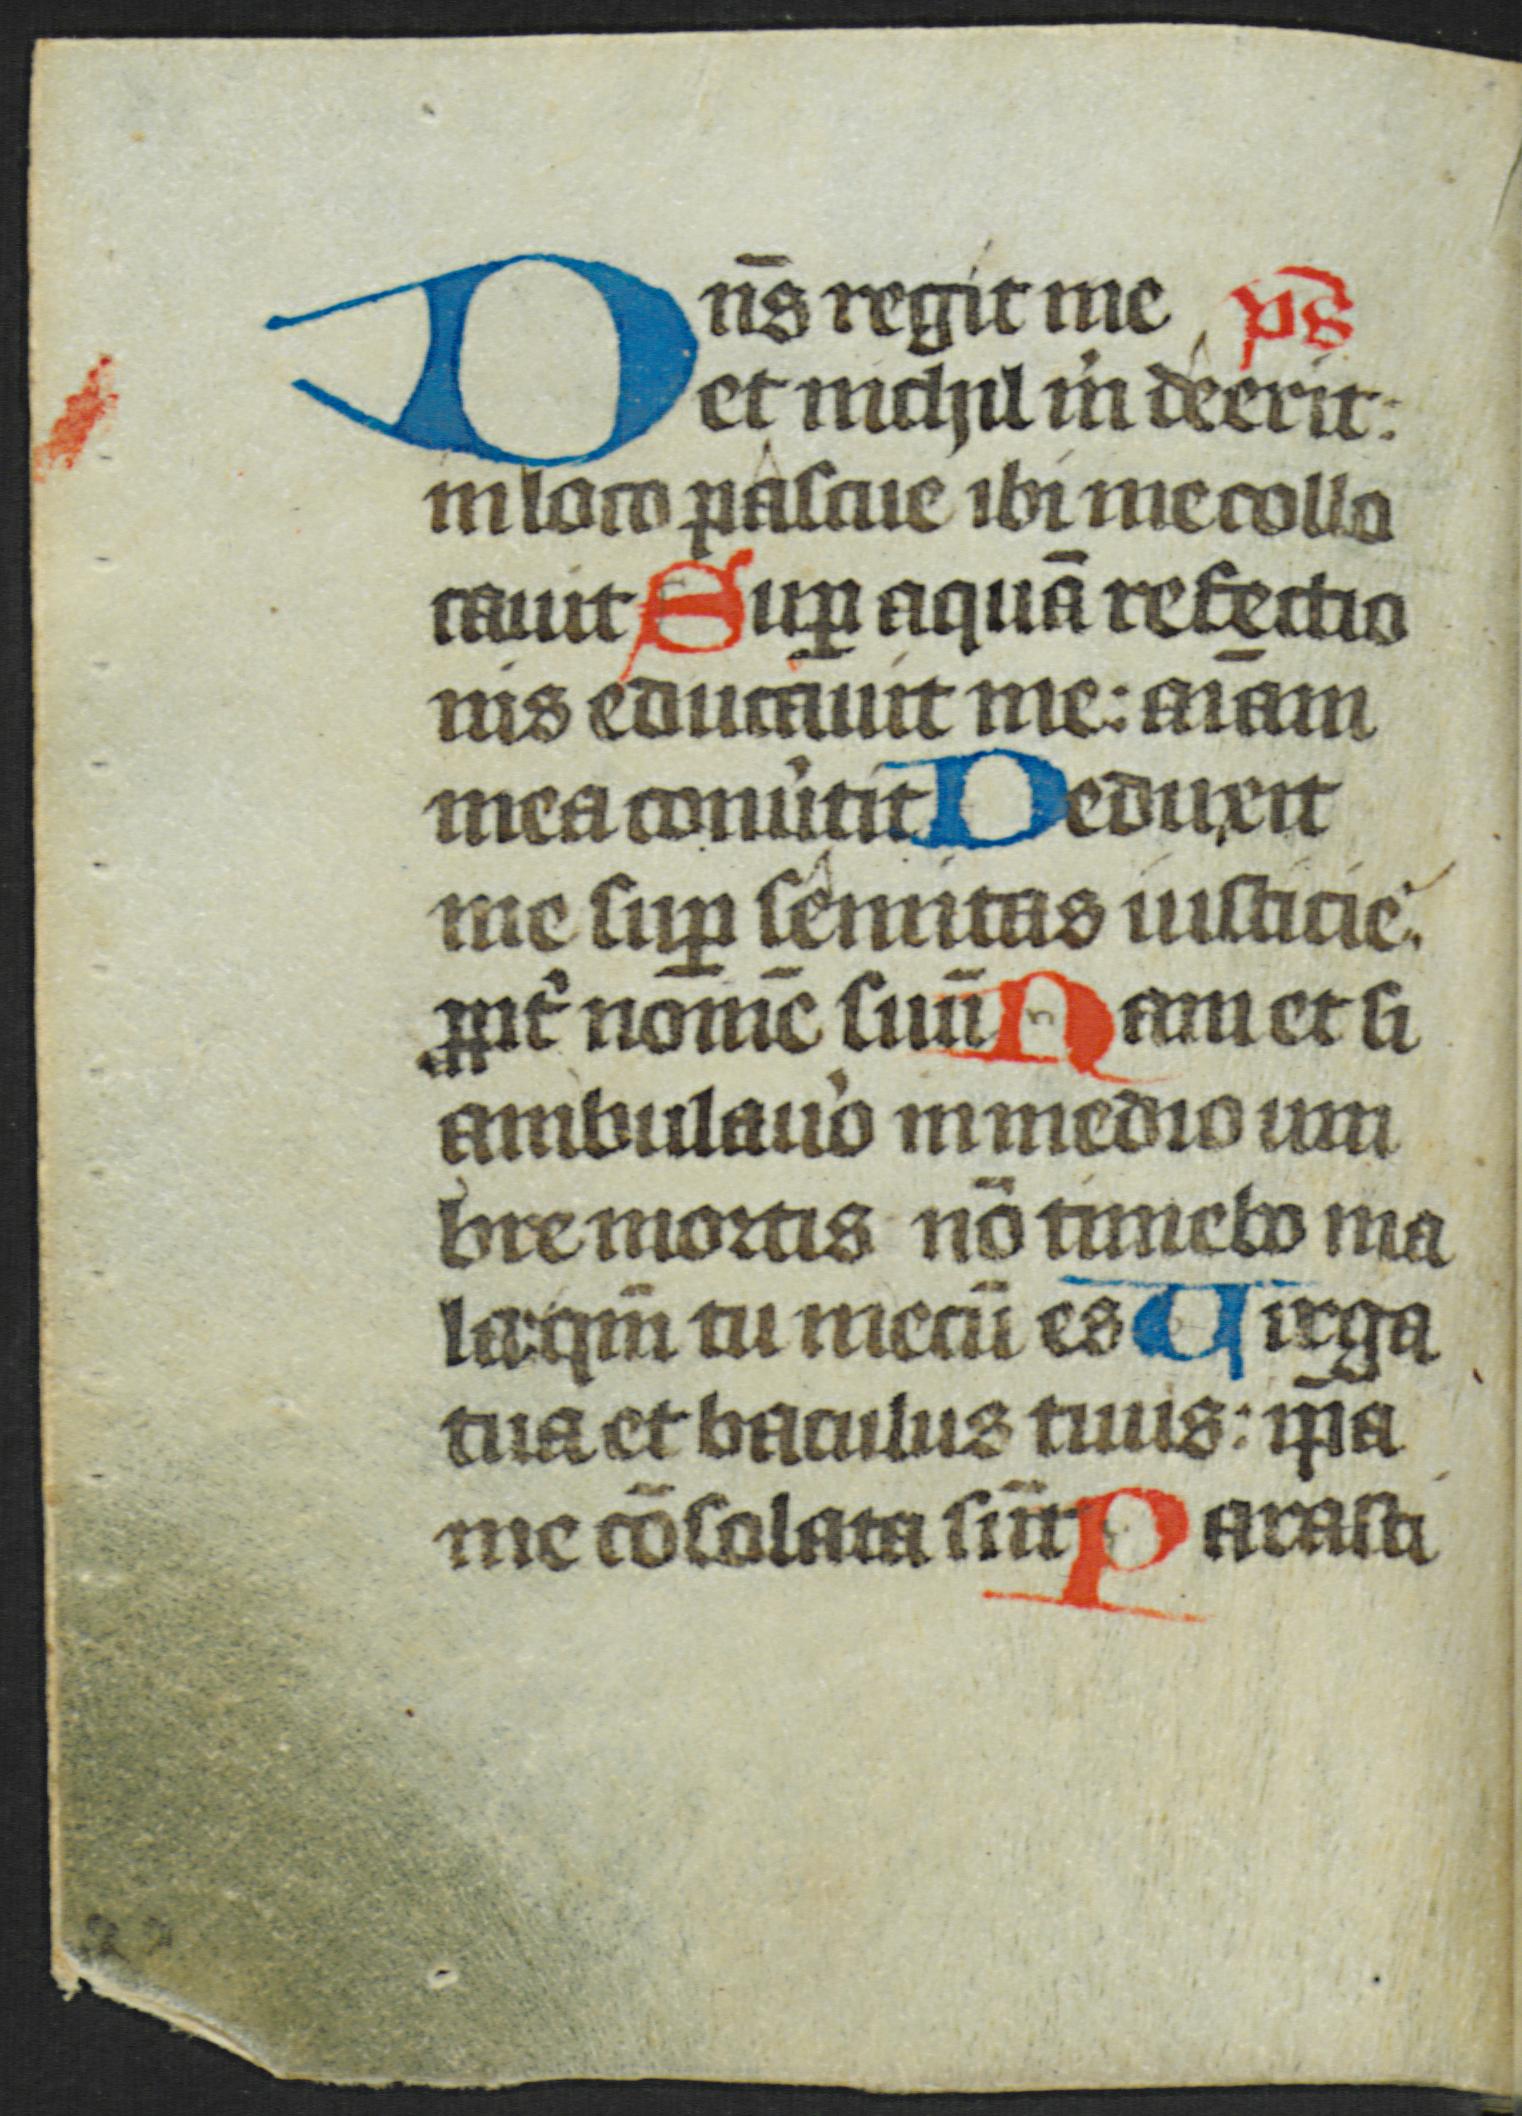 Dn̄s regit me p̄s
et nichil m̄ deerit:
in loco pascue ibi me collo
cauit Suꝑ aquā refectio
nis educauit me: aīam
mea conu̓tit Deduxit
me suꝑ semitas iusticie.
ꝓpt̓ nomē suū Nam et si
ambulau̓o in medio um
bre mortis nō timebo ma
la: qm̄ tu mecū es Uirga
tua et baculus tuus: ip̄a
me cōsolata sūt Parasti